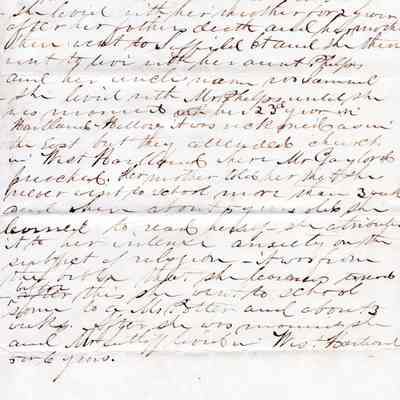 she lived with her mother for years
after her father's death and her mother
then went to Suffield Ct and she then
went to live with her aunt Phelps
and her uncle's name was Samuel
- she lived with Mr Phelps until she
was married in her 23d year in
Hartland - Hollow it was reckoned as in
the East but they attended church
in West Hartland where Mr Gaylord
preached. Her mother told her that she
never went to school more than 3 weeks
and when about years old she
learned to read herself - she attributes
it to her intense anxiety on the
subject of religion - it was from
the Bible that she learned
after this she went to school
some to a Ms and about 3
weeks. After she was married she
and Mr lived in West Hartland
for 6 years.